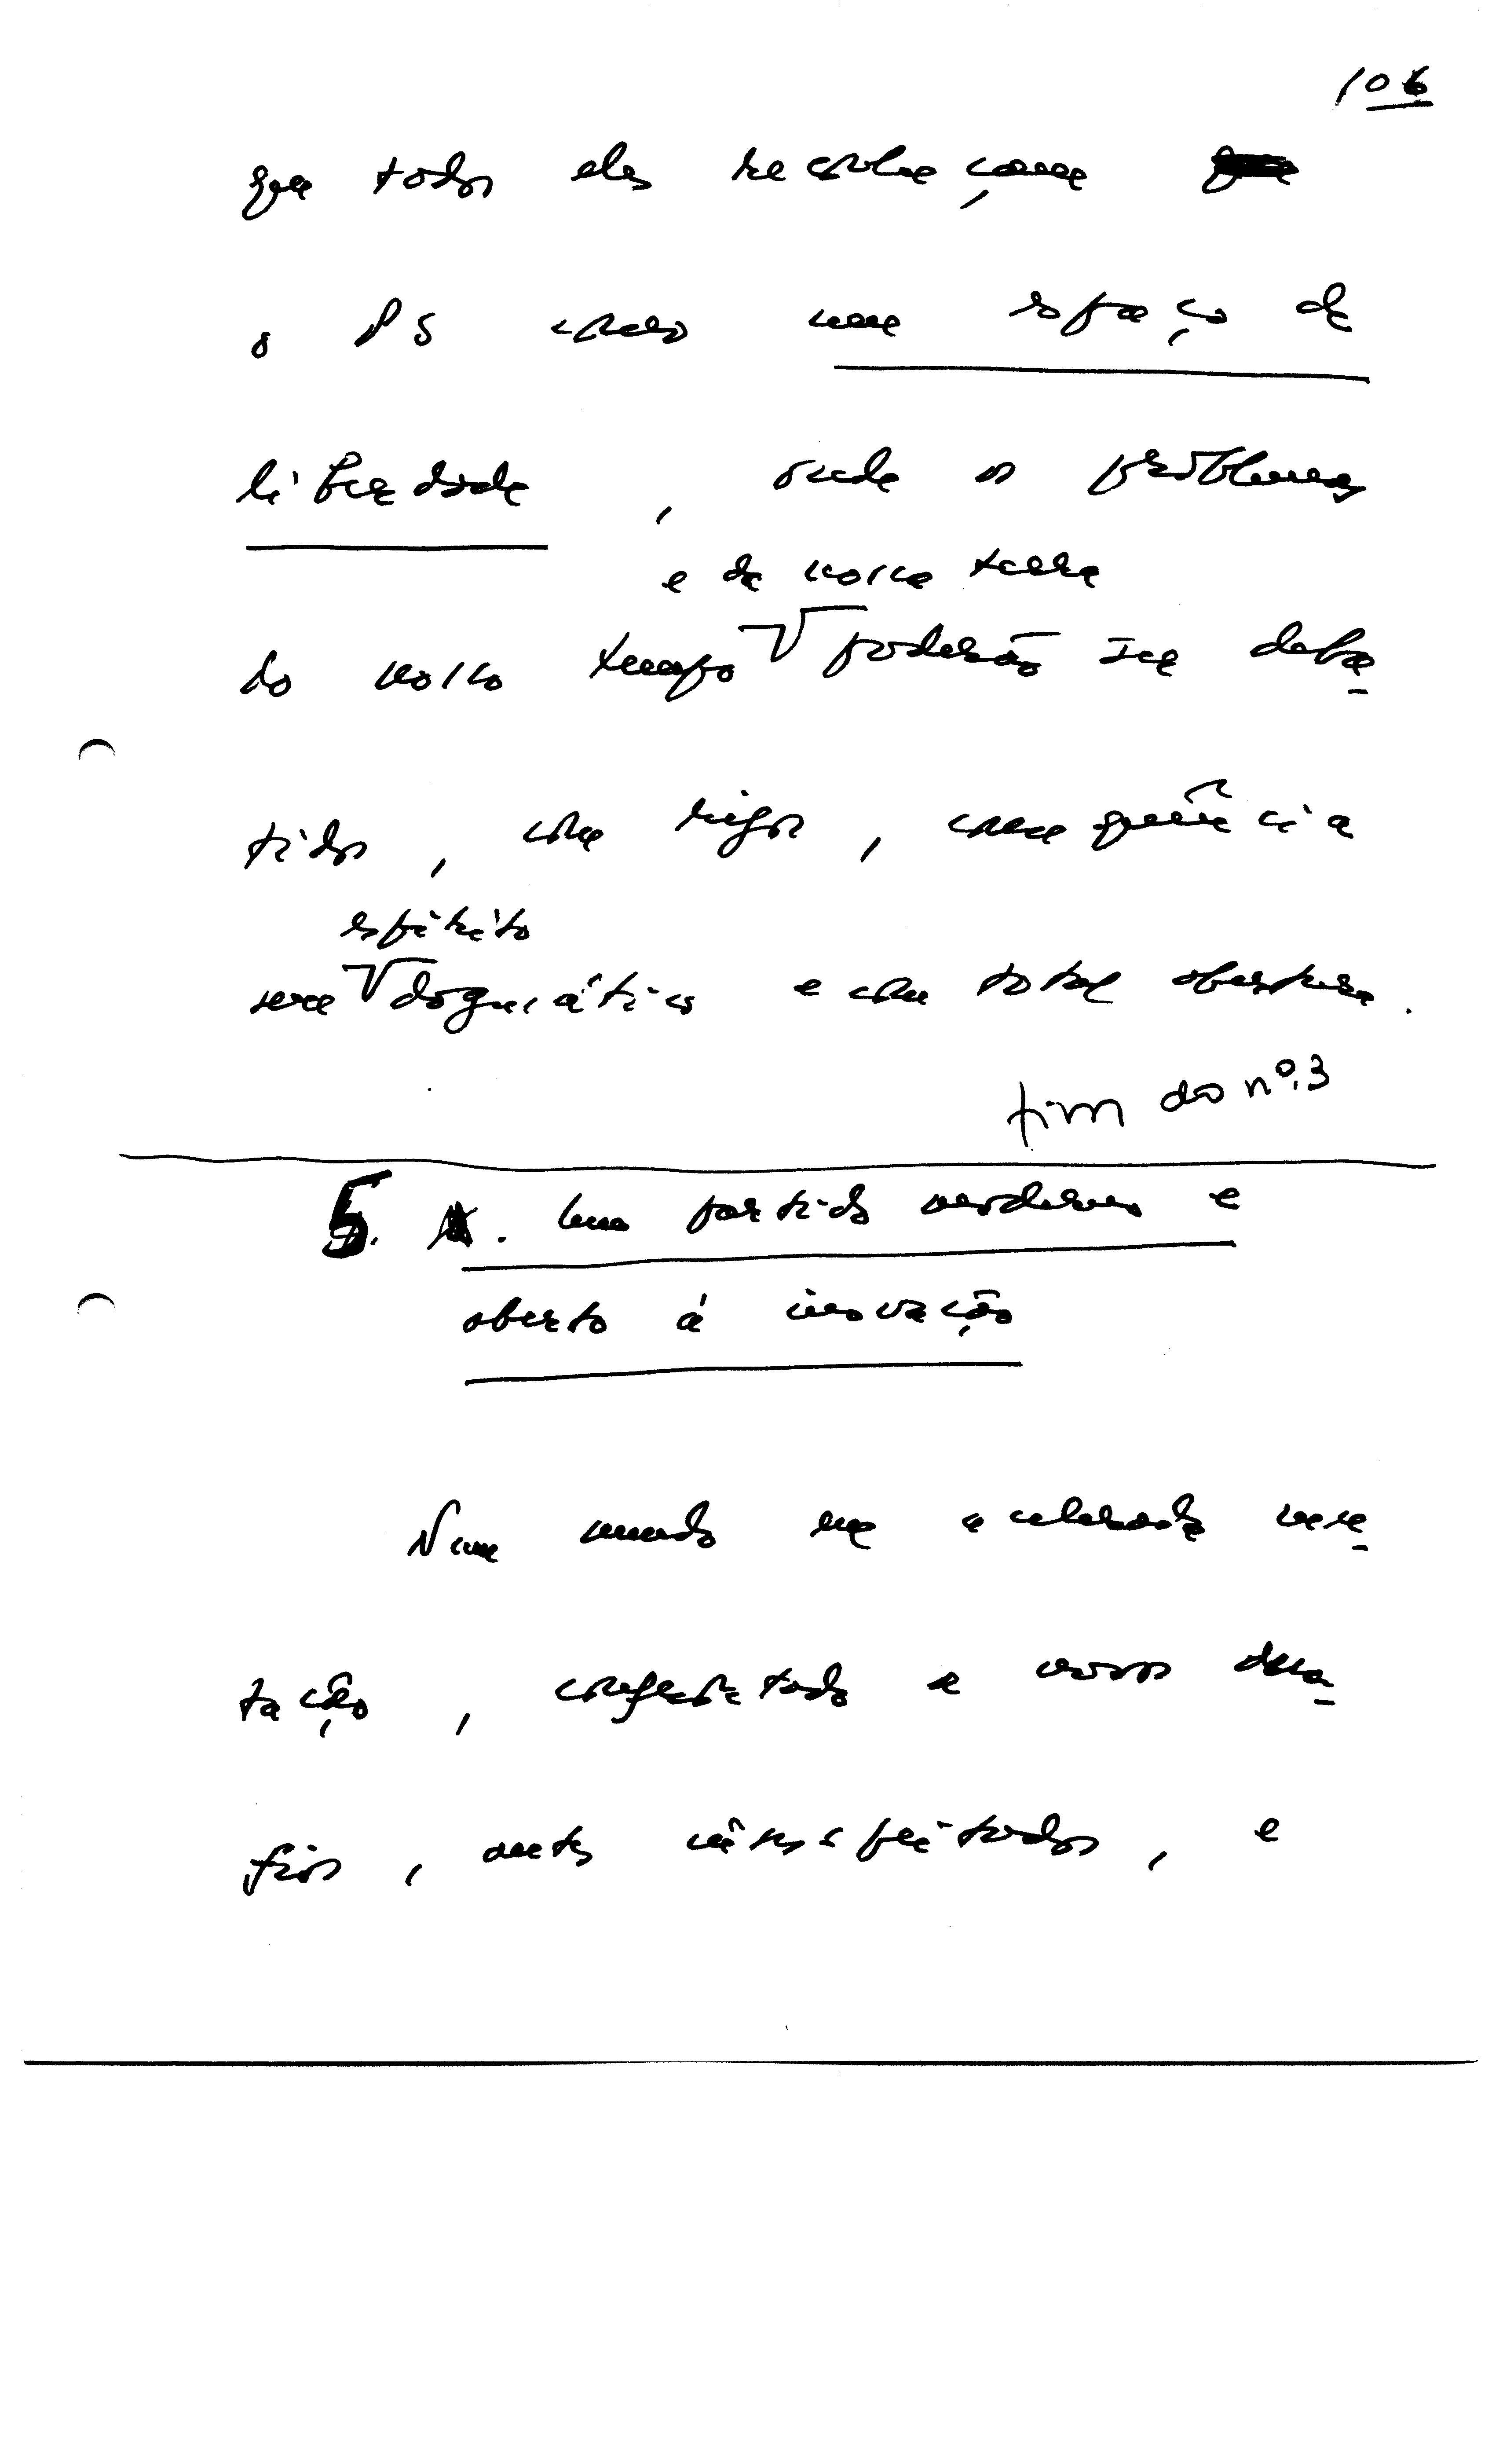 106
que todos eles reconheçam que
o PS como um espaço de
liberdade, onde os problemas
e da nossa terra
do nosso tempo poderão ser deba-
tidos, com rigor, consequência
espírito
sem dogmático e com total abertura.
fim do nº. 3
5. Um partido moderno e
aberto à inovação
Num mundo em acelerada mu-
tação, confrontado a novos desa-
fios, antes insuspeitados, e